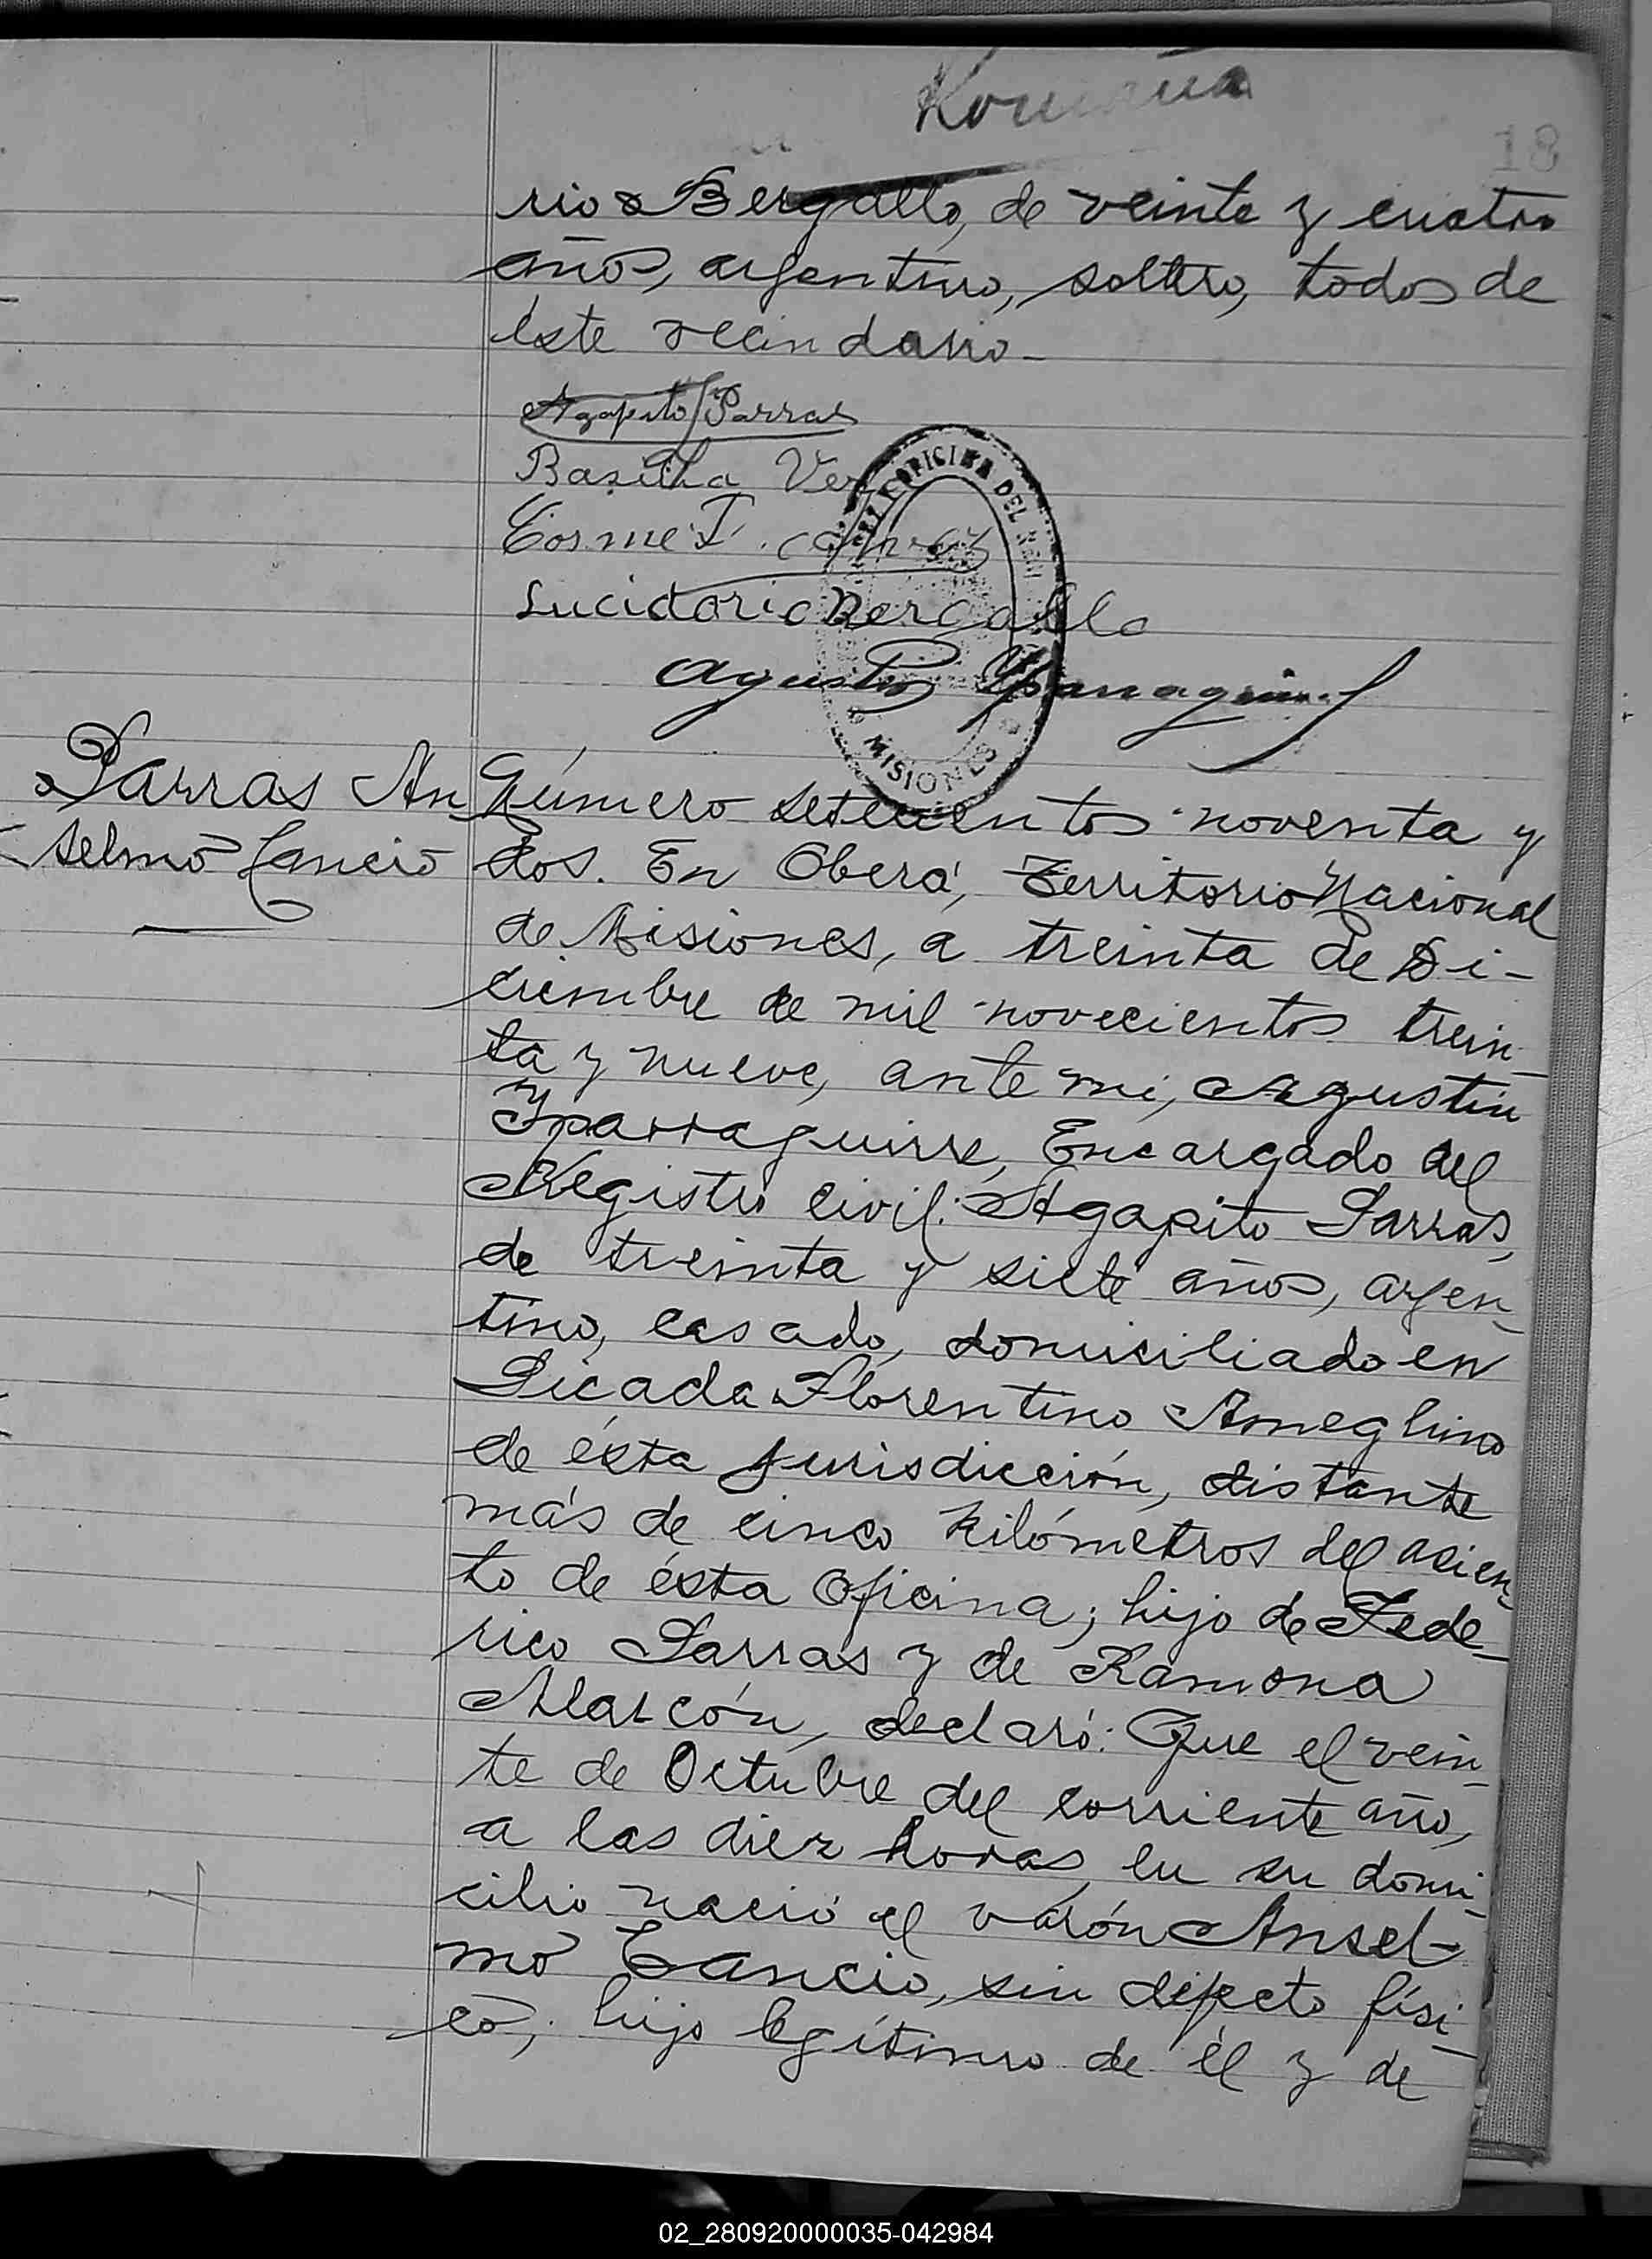 Romana
18
rio Bergallo, de veinte y cuatro
años, argentino, soltero, todos de
éste vecindario.
Agapito Parras
Basilia Ver
Cosme I.
Lucidorio Bergallo
Agustin Yparraguirre
OFICINA DEL
MISIONES
Parras An
selmo Cancio
Número setecientos noventa y
dos. En Oberá, Territorio Nacional
de Misiones, a treinta de Di-
ciembre de mil novecientos trein-
ta y nueve, ante mi, Agustin
Yparraguirre, Encargado del
Registro Civil: Agapito Parras,
de treinta y siete años, argen-
tino, casado, domiciliado en
Picada Florentino Ameghino
de ésta jurisdicción, distante
más de cinco kilómetros del asien-
to de ésta Oficina; hijo de Fede-
rico Parras y de Ramona
Alarcón, declaró: Que el vein-
te de Octubre del corriente año,
a las diez horas, en su domi-
cilio nació el varón Ansel-
mo Cancio, sin defecto físi-
co; hijo legítimo de él y de
02_280920000035-042984